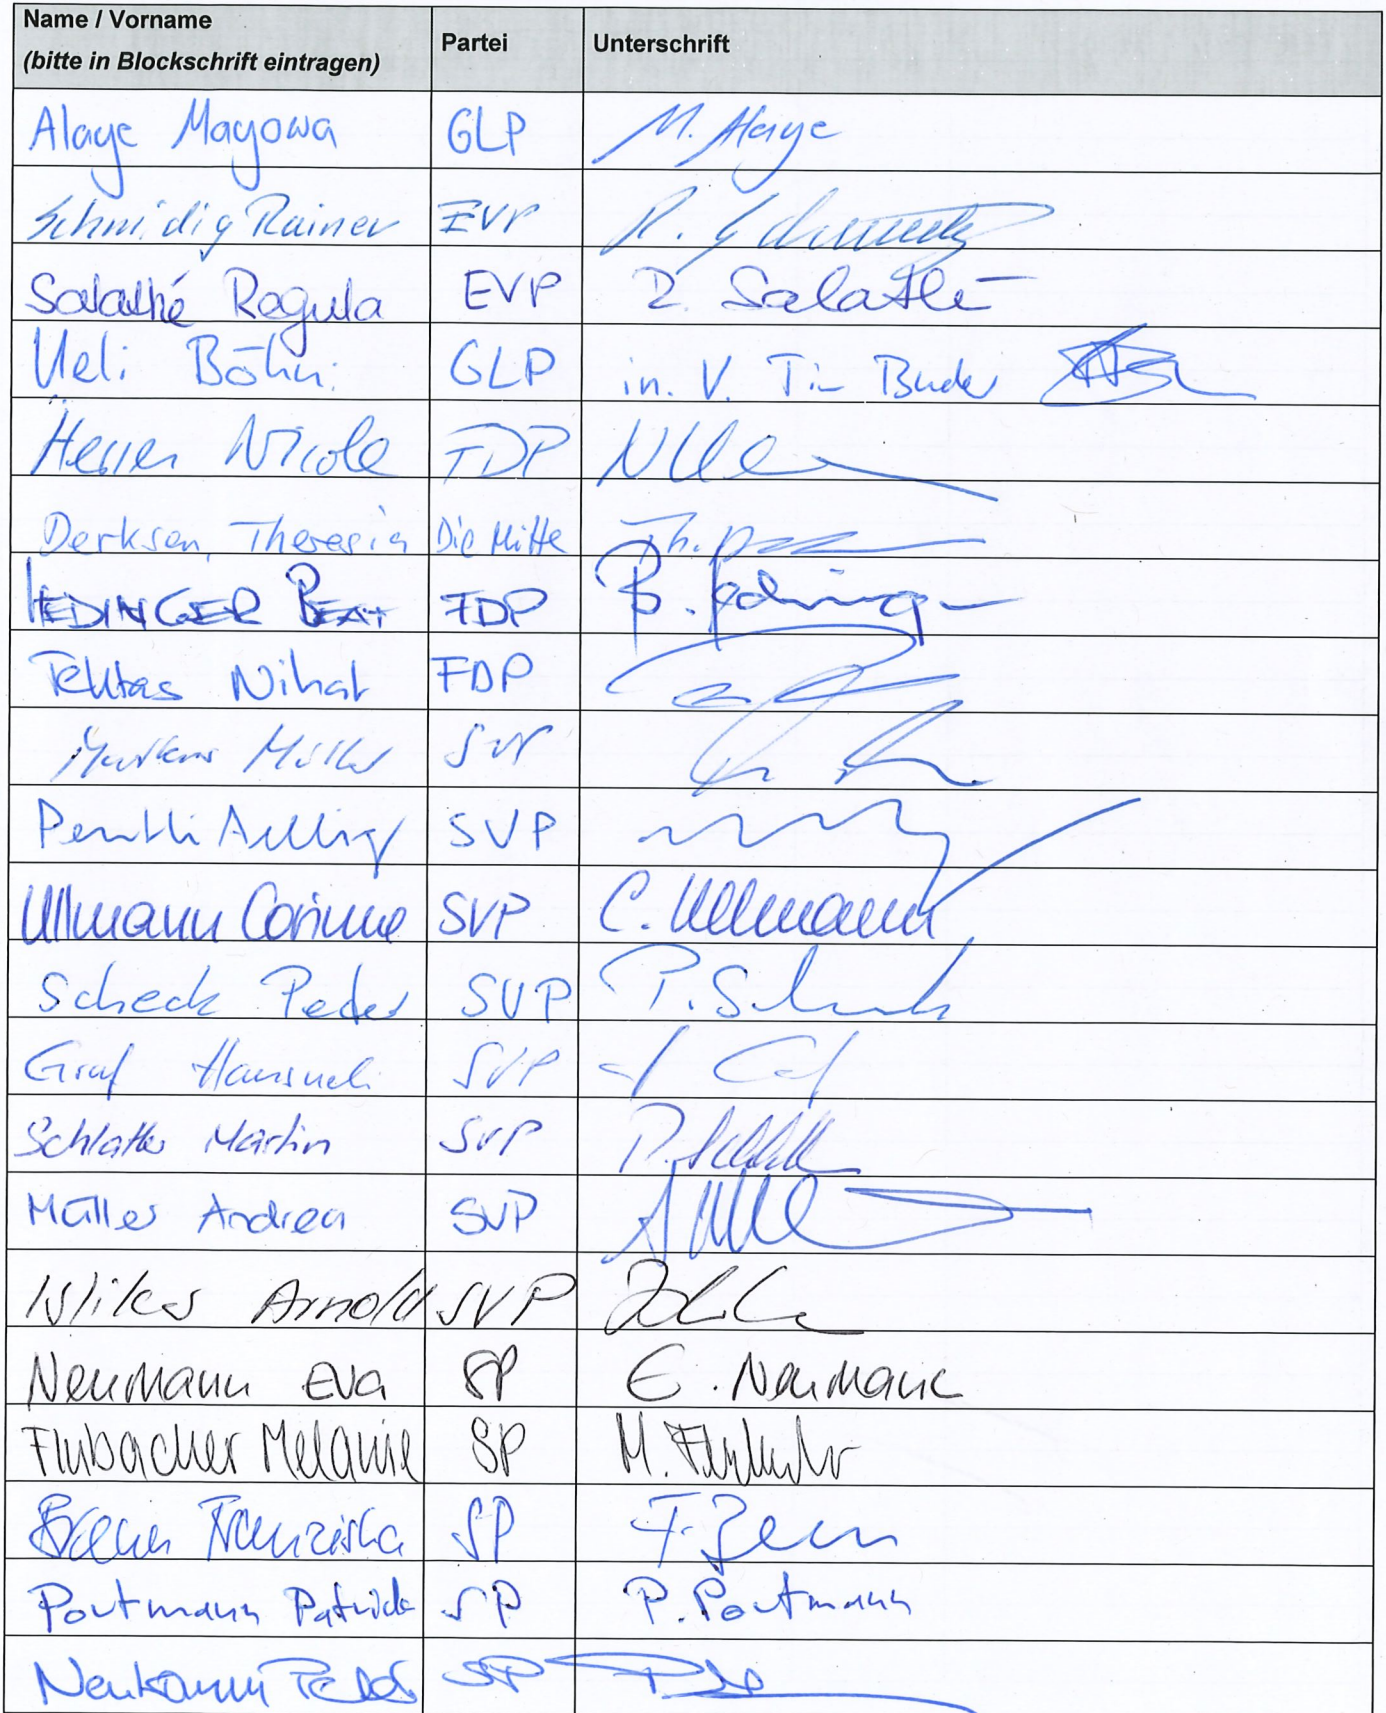 Name / Vorname
(bitte in Blockschrift eintragen) Partei Unterschrift
Alaye Mayowa GLP M. Alaye
Schmidig Rainer EVP R. Schmidig
Salathé Regula EVP R. Salathé
Ueli Böhni GLP in. V. Tim Bucher
Herren Nicole FDP
Derksen, Theresia Die Mitte Th.
HEDINGER BEAT FDP B. Hedinger
Tektas Nihat FDP
Markus Müller SVP
Pentti Aellig SVP
Ullmann Corinne SVP C. Ullmann
Scheck Peter SVP P. Scheck
Graf Hansueli SVP
Schlatter Martin SVP
Müller Andrea SVP
Isliker Arnold SVP
Neumann Eva SP E. Neumann
Flubacher Melanie SP M. Flubacher
Brenn Franziska SP F. Brenn
Portmann Patrick SP P. Portmann
Neukomm Peter SP